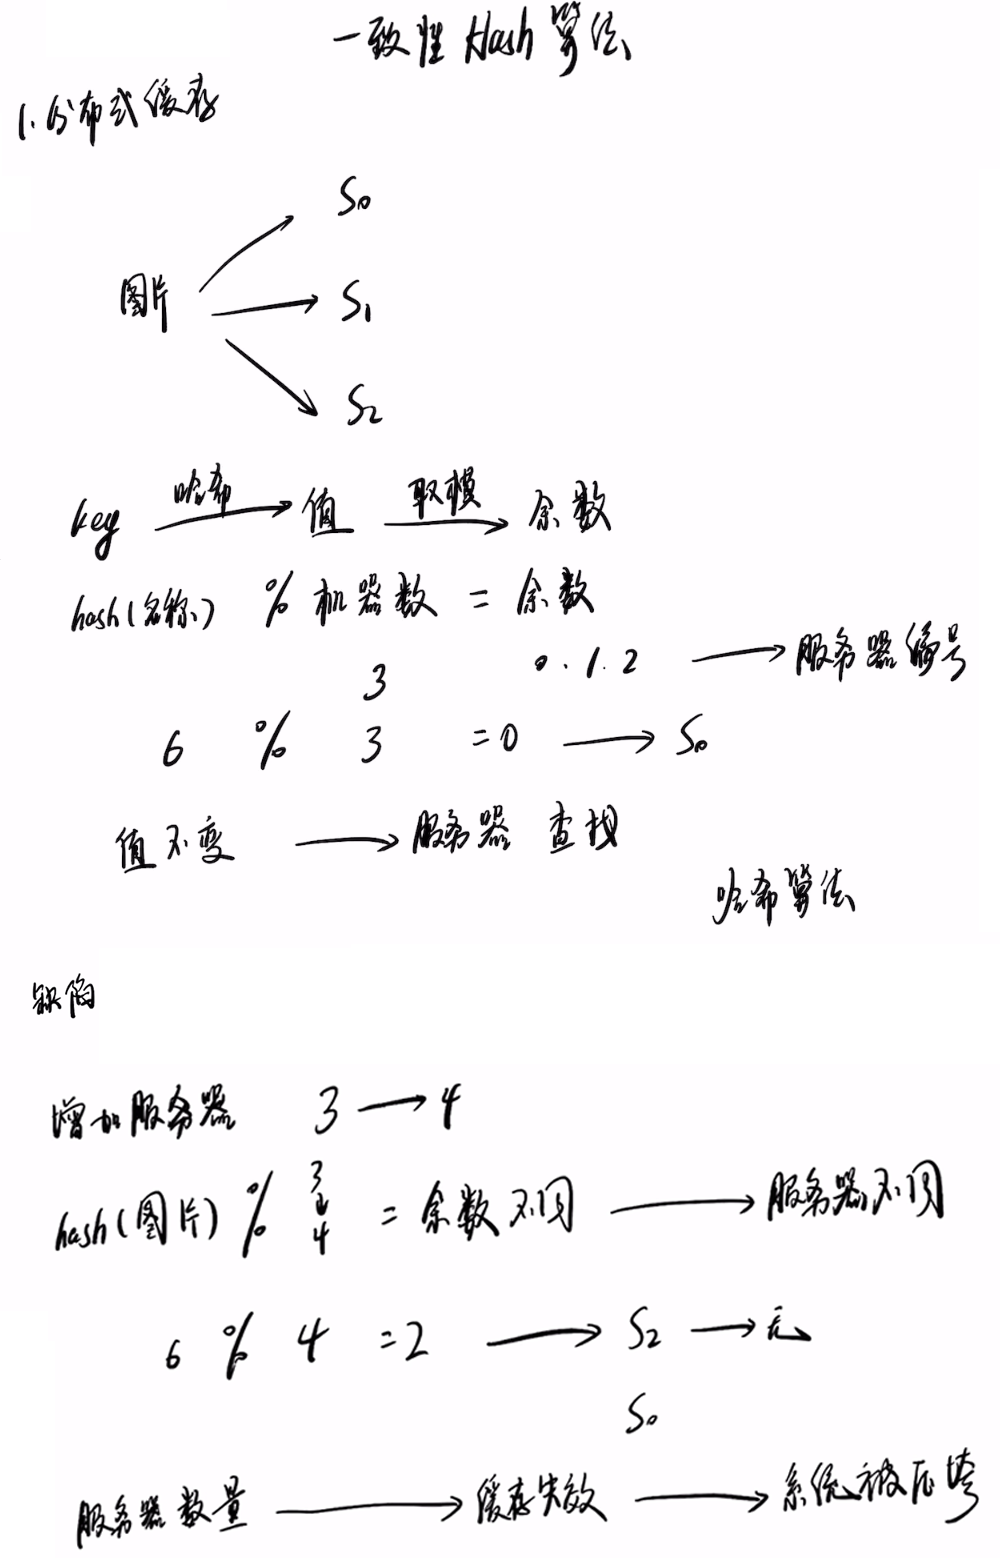 一致性 Hash 算法
1. 分布式缓存
S0
图片 → S1
S2
key 哈希→ 值 取模→ 余数
hash(名称) % 机器数 = 余数
3 0.1.2 → 服务器编号
6 % 3 =0 → S0
值不变 → 服务器 查找
哈希算法
缺陷
增加服务器 3→4
hash(图片) % 3↓4 = 余数不同 → 服务器不同
6 % 4 =2 → S2 → 无
S0
服务器数量 → 缓存失效 → 系统被压垮